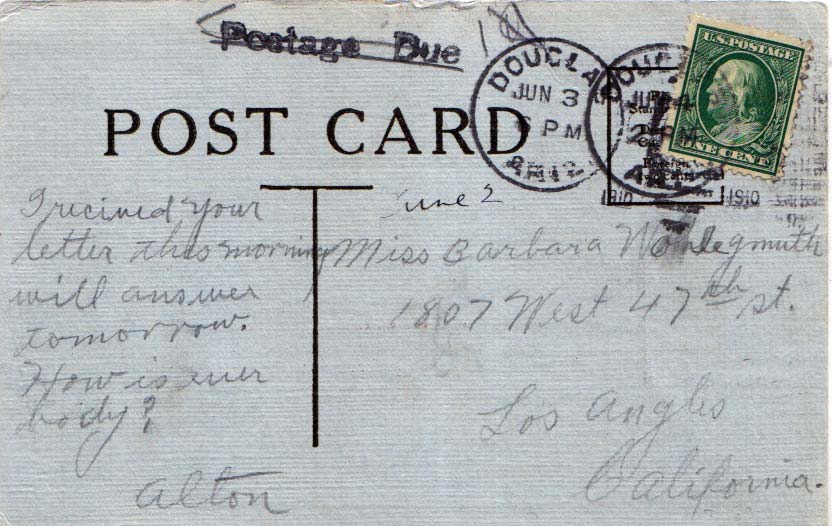 Postage Due
DOUGLAS
JUN 3
PM
ARIZ.
U.S. POSTAGE
ONE CENT
1910
1910
POST CARD
June 2
I recieved your
letter this morning
will answer
tomorrow.
How is ever
body?
Alton
Miss Barbara
1807 West 47th st.
Los Angles
California.